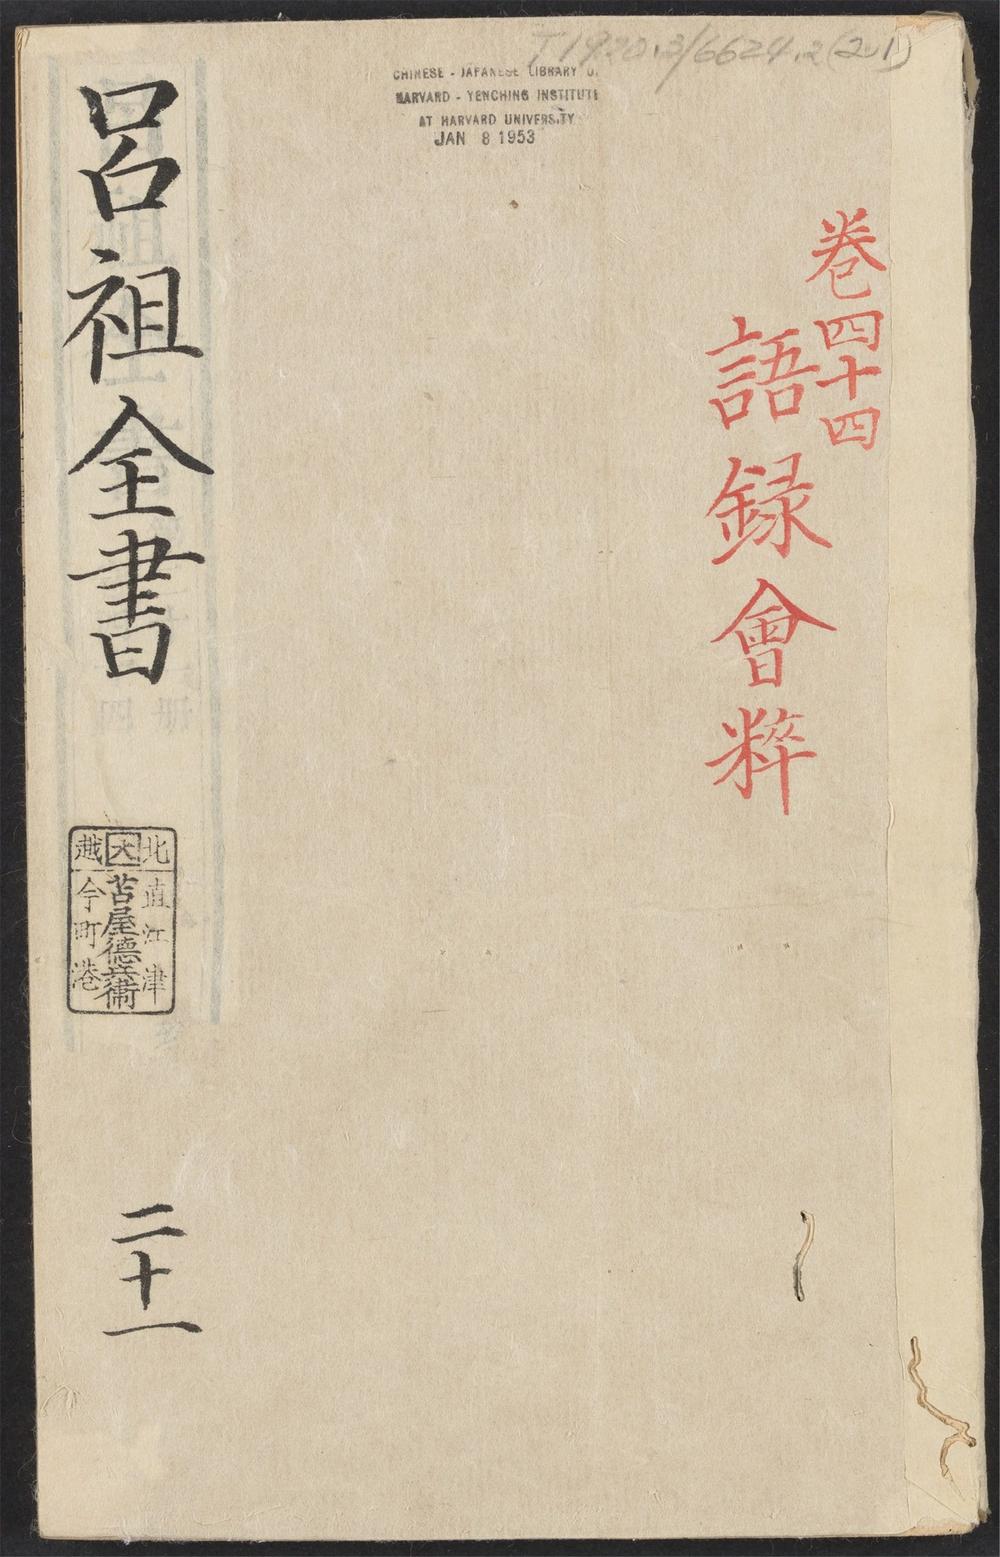 T1920.3/6624.2(21)
CHINESE - JAPANESE LIBRARY O.
HARVARD - YENCHING INSTITUTE
AT HARVARD UNIVERSITY
JAN 8 1953
卷四十四
語録會粹
呂祖全書
二十一
北越
大
直江津
苫屋德兵衛
今町港
四 册